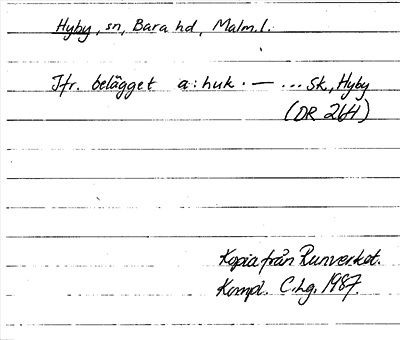 Hyby, sn, Bara hd, Malm.l.
Jfr. belägget a:huk·— ... Sk., Hyby
(DR 264)
Kopia från Runverket.
Kompl. C.hg. 1987.